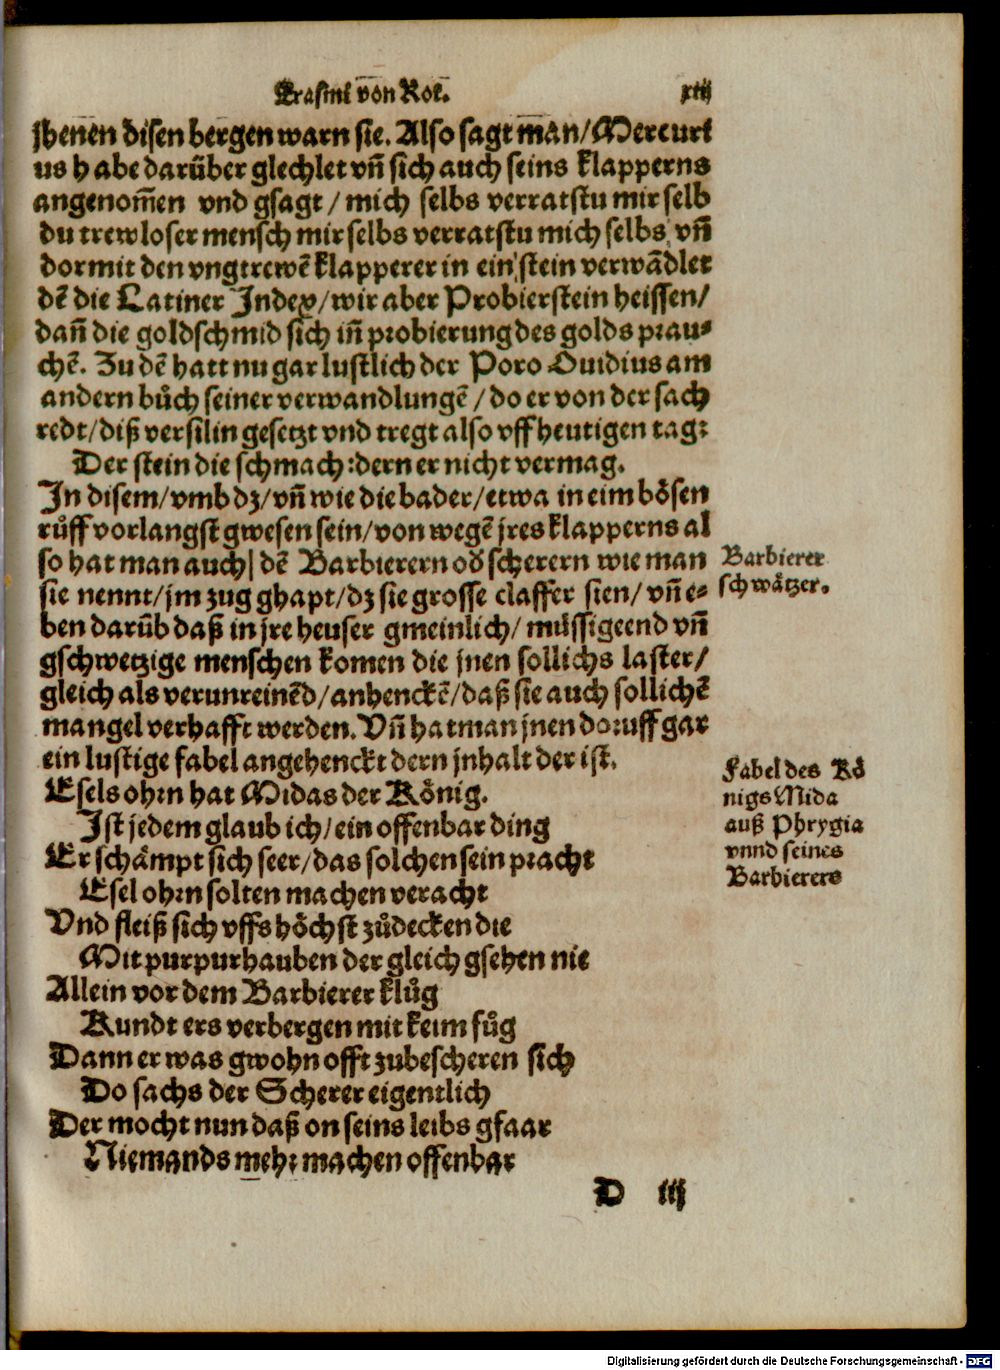 Erasmi von Rot. xiij
jhenen disen bergen warn sie. Also sagt man/Mercuri
us habe darüber glechlet vñ sich auch seins klapperns
angenom̃en vnd gsagt / mich selbs verratstu mir selb
du trewloser mensch mir selbs verratstu mich selbs, vñ
dormit den vngtrewẽ klapperer in ein stein verwãdlet
dẽ die Latiner Index/wir aber Probierstein heissen/
dañ die goldschmid sich iñ probierung des golds prau⸗
chẽ. Zu dẽ hatt nu gar lustlich der Poro Ouidius am
andern bůch seiner verwandlungẽ / do er von der sach
redt/diß versilin gesetzt vnd tregt also vff heutigen tag:
Der stein die schmach:dern er nicht vermag.
In disem/vmb dz/vñ wie die bader/etwa in eim bösen
růff vorlangst gwesen sein/von wegẽ jres klapperns al
so hat man auch/ dẽ Barbierern oď scherern wie man
sie nennt/jm zug ghapt/dz sie grosse claffer sien/ vñ e⸗
ben darũb daß in jre heuser gmeinlich/ müssigeend vñ
gschwetzige menschen komen die jnen sollichs laster/
gleich als verunreinẽd/anhenckẽ/daß sie auch sollichẽ
mangel verhafft werden. Vñ hat man jnen doruff gar
ein lustige fabel angehenckt dern jnhalt der ist.
Barbierer
schwätzer.
Esels ohrn hat Midas der König.
Ist jedem glaub ich/ein offenbar ding
Er schämpt sich seer/das solchen sein pracht
Esel ohrn solten machen veracht
Vnd fleiß sich vffs höchst zůdecken die
Mit purpurhauben der gleich gsehen nie
Allein vor dem Barbierer klůg
Kundt ers verbergen mit keim fůg
Dann er was gwohn offt zubescheren sich
Do sachs der Scherer eigentlich
Der mocht nun daß on seins leibs gfaar
Niemands mehr machen offenbar
Fabel des Kö
nigs Mida
auß Phrygia
vnnd seines
Barbierers
D iij
Digitalisierung gefördert durch die Deutsche Forschungsgemeinschaft - DFG